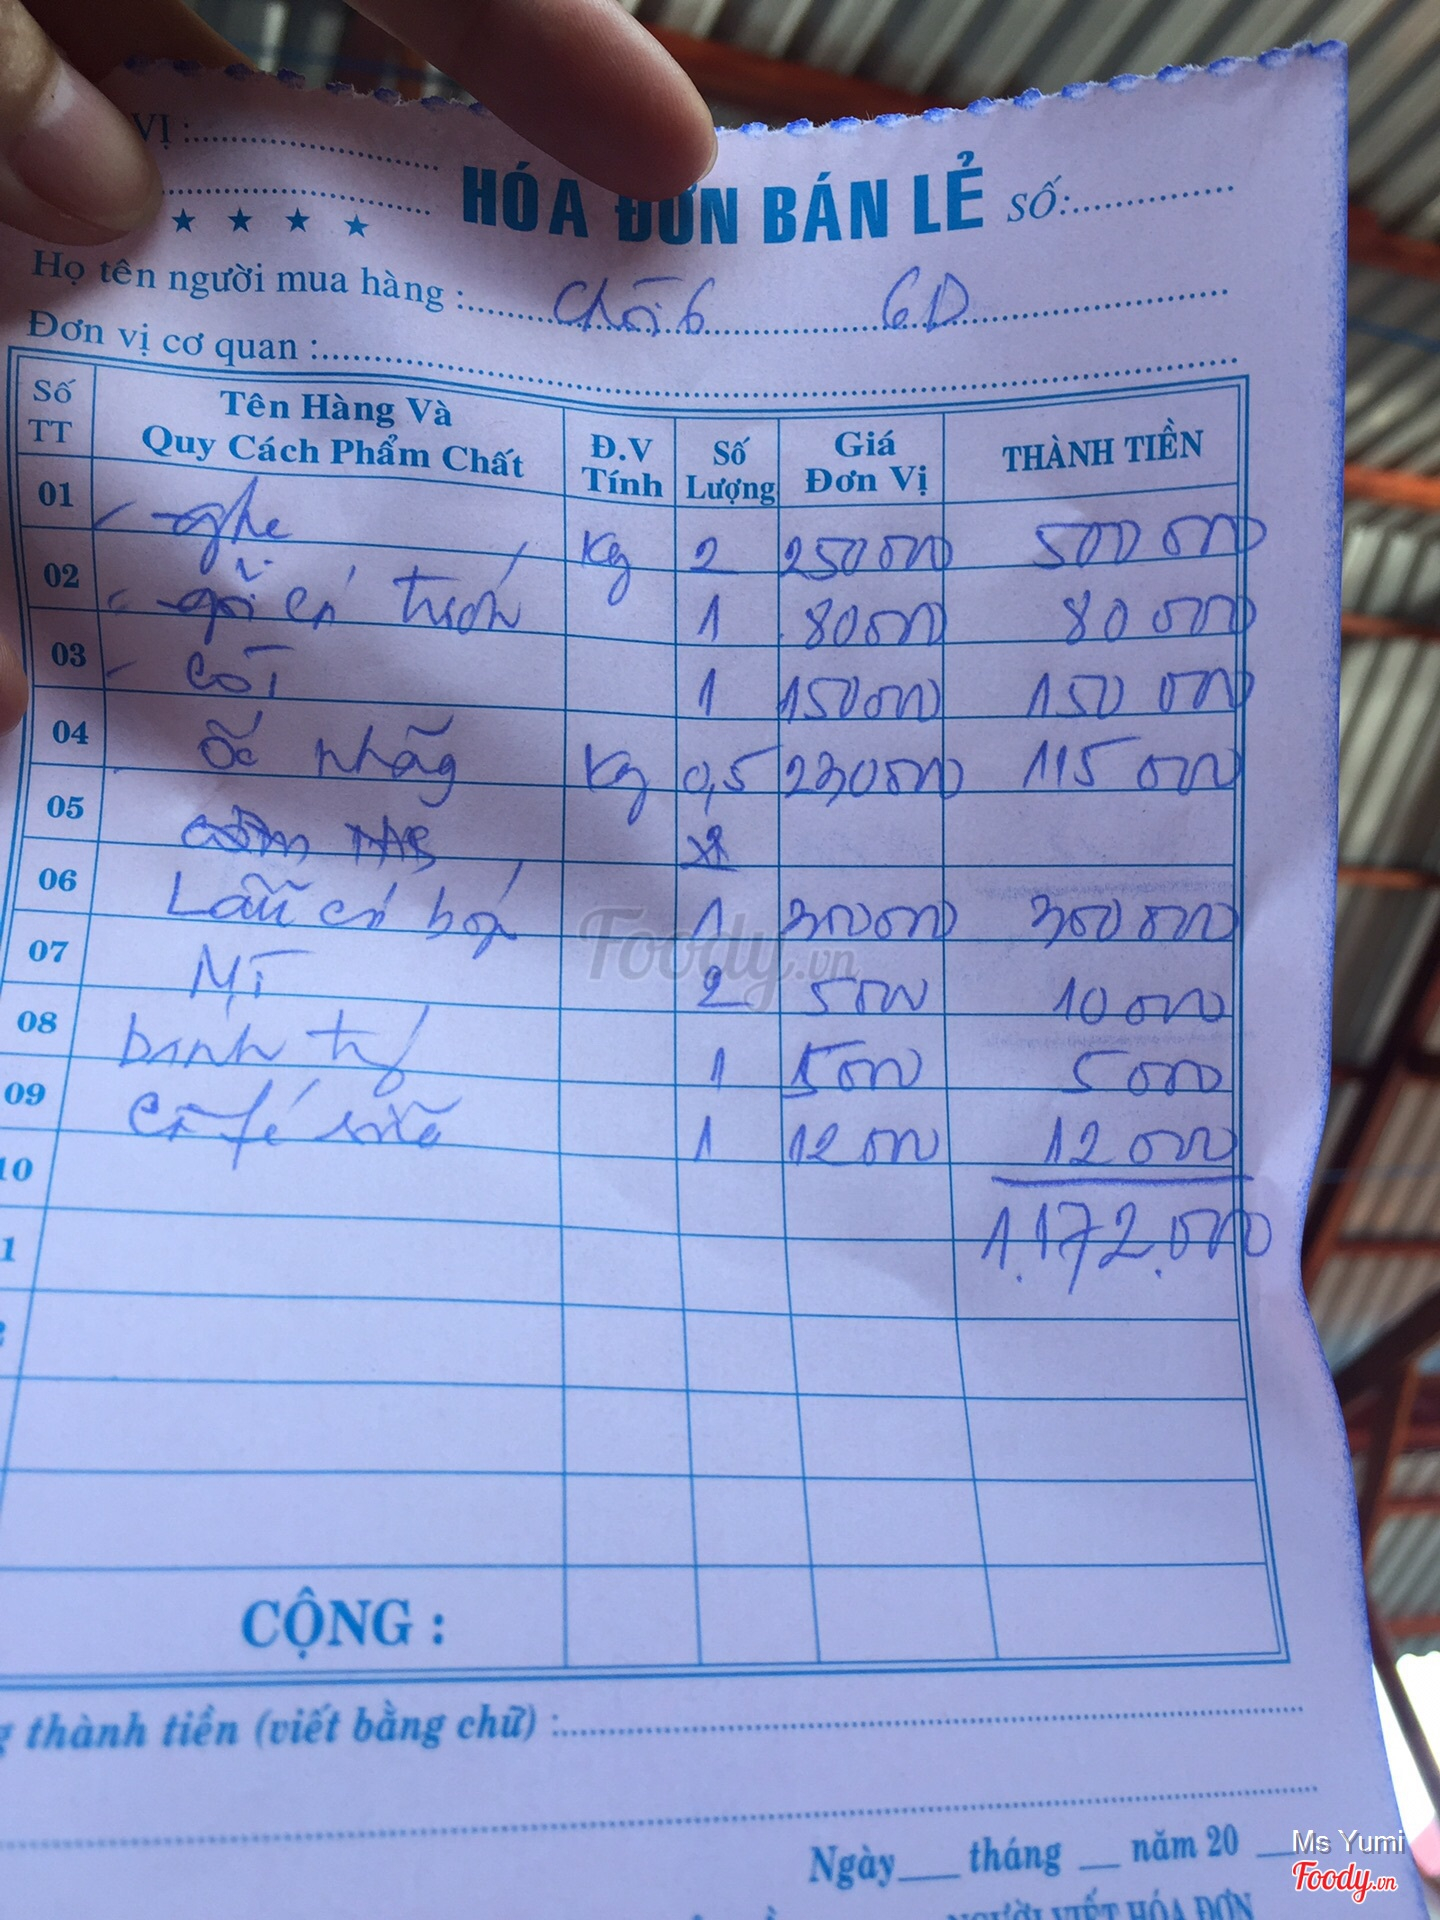 VỊ :
★ ★ ★ ★
HÓA ĐƠN BÁN LẺ SỐ:
Họ tên người mua hàng : Chòi 6 6D
Đơn vị cơ quan :
Số TT Tên Hàng Và Quy Cách Phẩm Chất Đ.V Tính Số Lượng Giá Đơn Vị THÀNH TIỀN
01 - ghẹ Kg 2 250 000 500 000
02 - gỏi cá trích 1 80 000 80 000
03 - 1 150 000 150 000
04 ốc nhãy Kg 0,5 230 000 115 000
05
06 Lẩu cá bóp 1 300 000 300 000
07 Mì 2 5 000 10 000
08 banh 1 5 000 5 000
09 Cà fé sữa 1 12 000 12 000
10 1.172.000
1
2
CỘNG :
g thành tiền (viết bằng chữ) :
Ngày tháng năm 20
NGƯỜI VIẾT HÓA ĐƠN
Foody.vn
Ms Yumi
Foody.vn